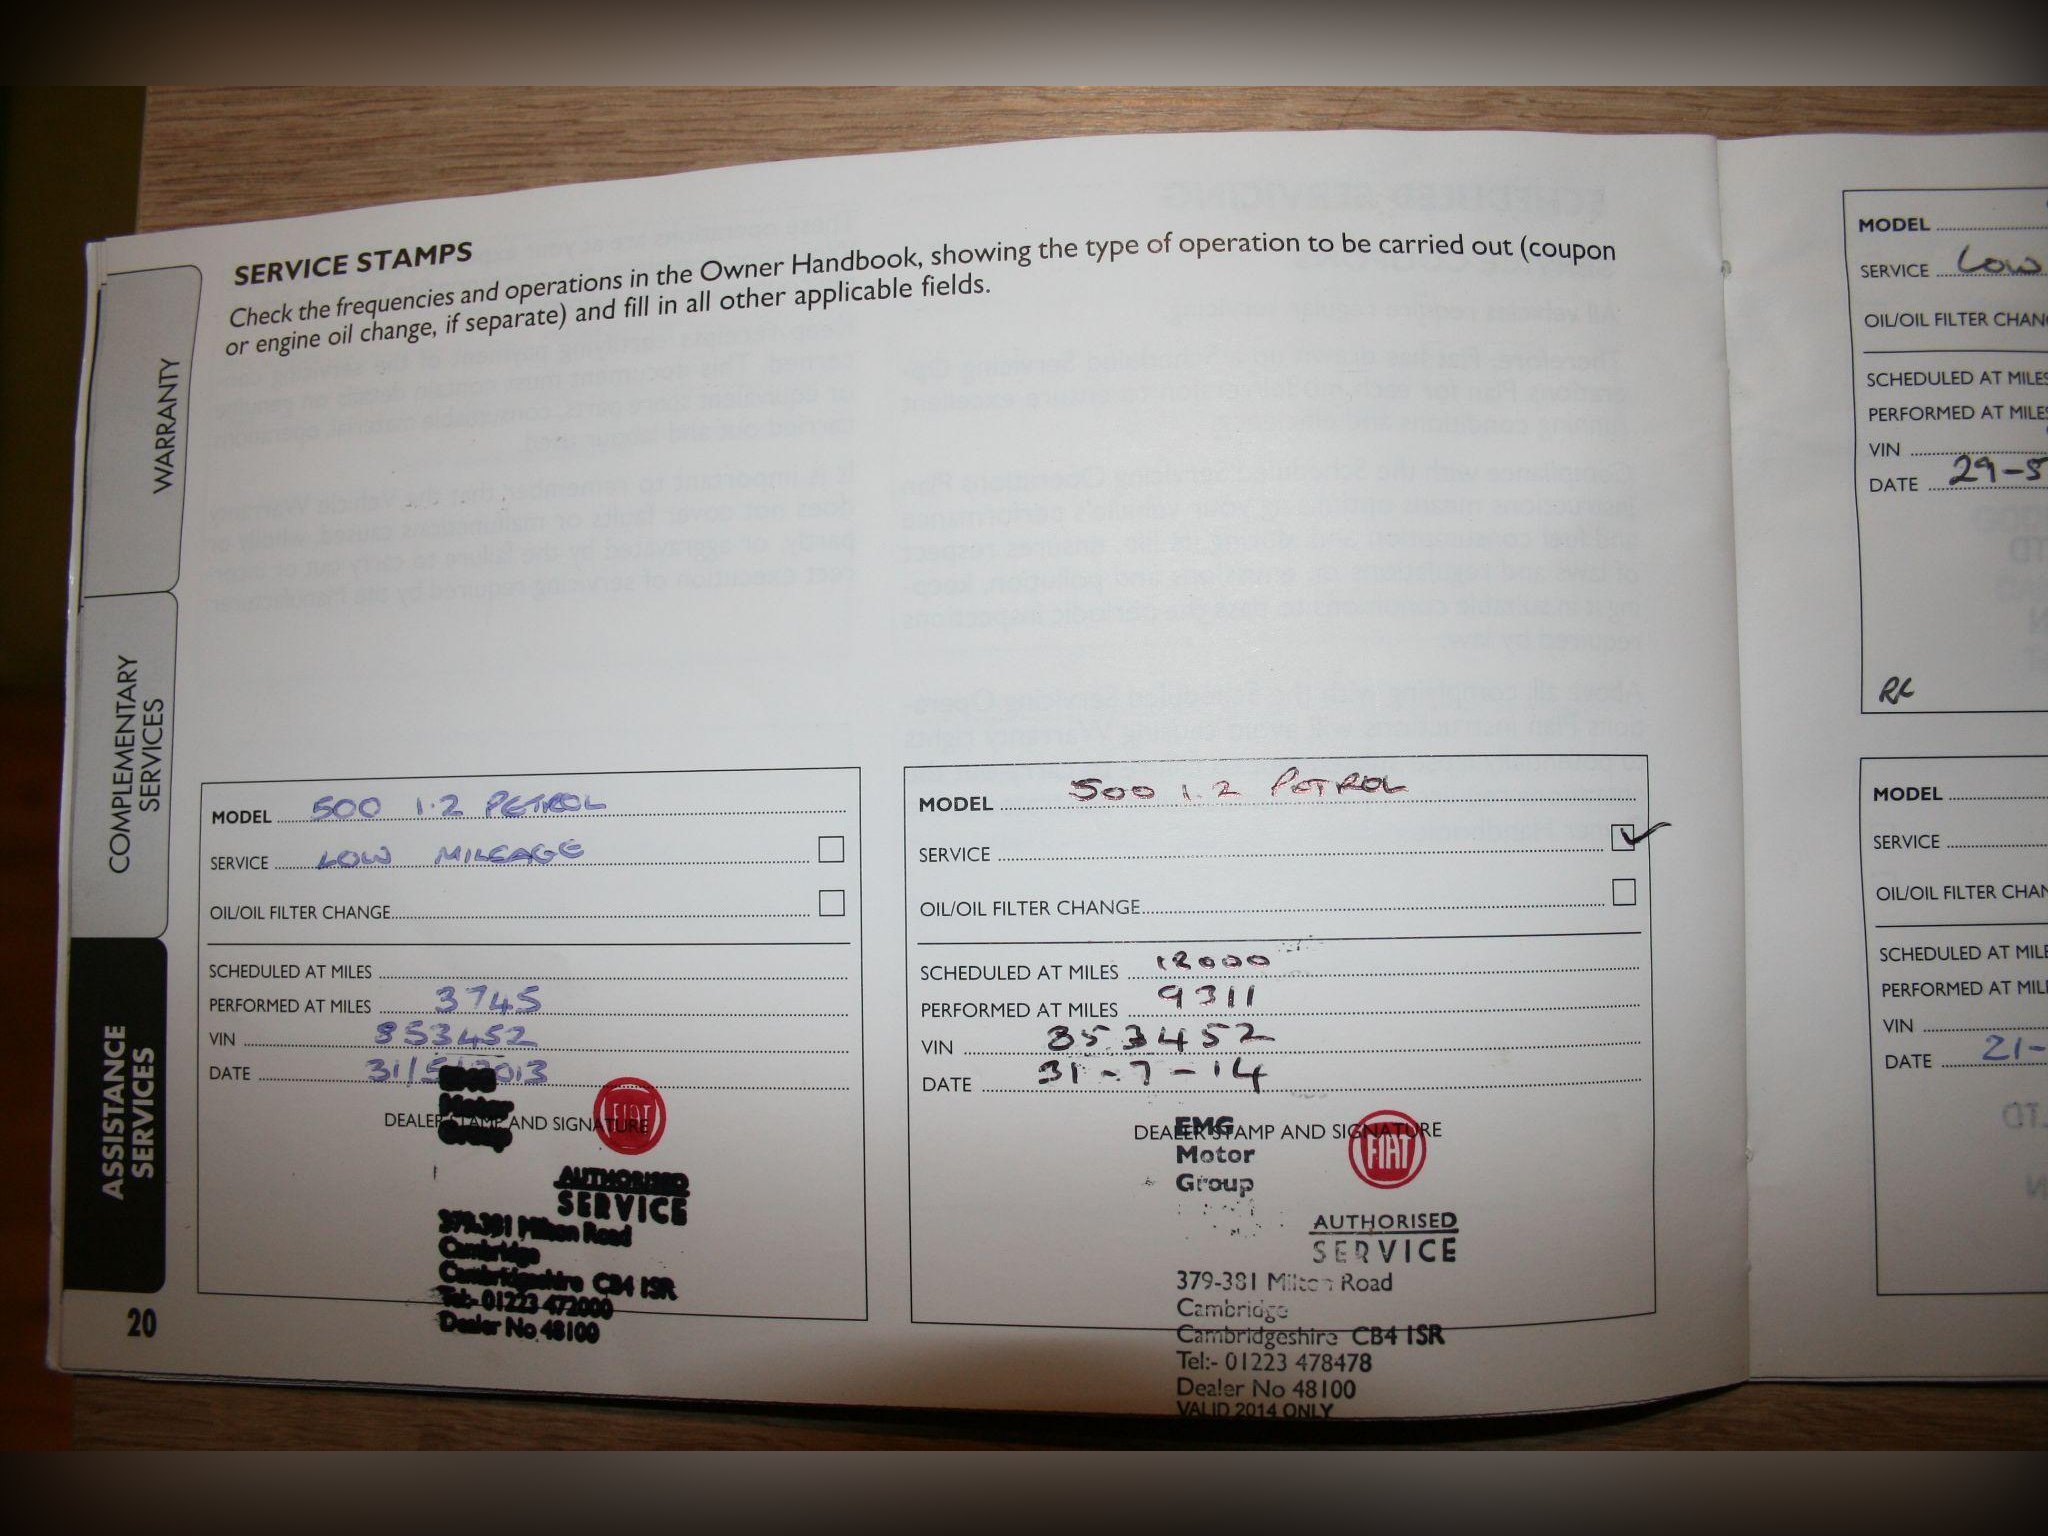 SERVICE STAMPS
Check the frequencies and operations in the Owner Handbook, showing the type of operation to be carried out (coupon
or engine oil change, if separate) and fill in all other applicable fields.
WARRANTY
COMPLEMENTARY
SERVICES
ASSISTANCE
SERVICES
20
MODEL 500 1.2 PETROL
SERVICE LOW MILEAGE
OIL/OIL FILTER CHANGE
SCHEDULED AT MILES
PERFORMED AT MILES 3745
VIN 853452
DATE 31/5/2013
DEALER STAMP AND SIGNATURE
Motor
Group
FIAT
AUTHORISED
SERVICE
379-381 Milton Road
Cambridge
Cambridgeshire CB4 1SR
Tel:- 01223 472000
Dealer No 48100
MODEL 500 1.2 PETROL
SERVICE
OIL/OIL FILTER CHANGE
SCHEDULED AT MILES 12000
PERFORMED AT MILES 9311
VIN 853452
DATE 31-7-14
DEALER STAMP AND SIGNATURE
EMG
Motor
Group
FIAT
AUTHORISED
SERVICE
379-381 Milton Road
Cambridge
Cambridgeshire CB4 1SR
Tel:- 01223 478478
Dealer No 48100
VALID 2014 ONLY
MODEL
SERVICE Low
OIL/OIL FILTER CHAN
SCHEDULED AT MILES
PERFORMED AT MILES
VIN
DATE 29-5
RK
MODEL
SERVICE
OIL/OIL FILTER CHAN
SCHEDULED AT MILE
PERFORMED AT MIL
VIN
DATE 21-